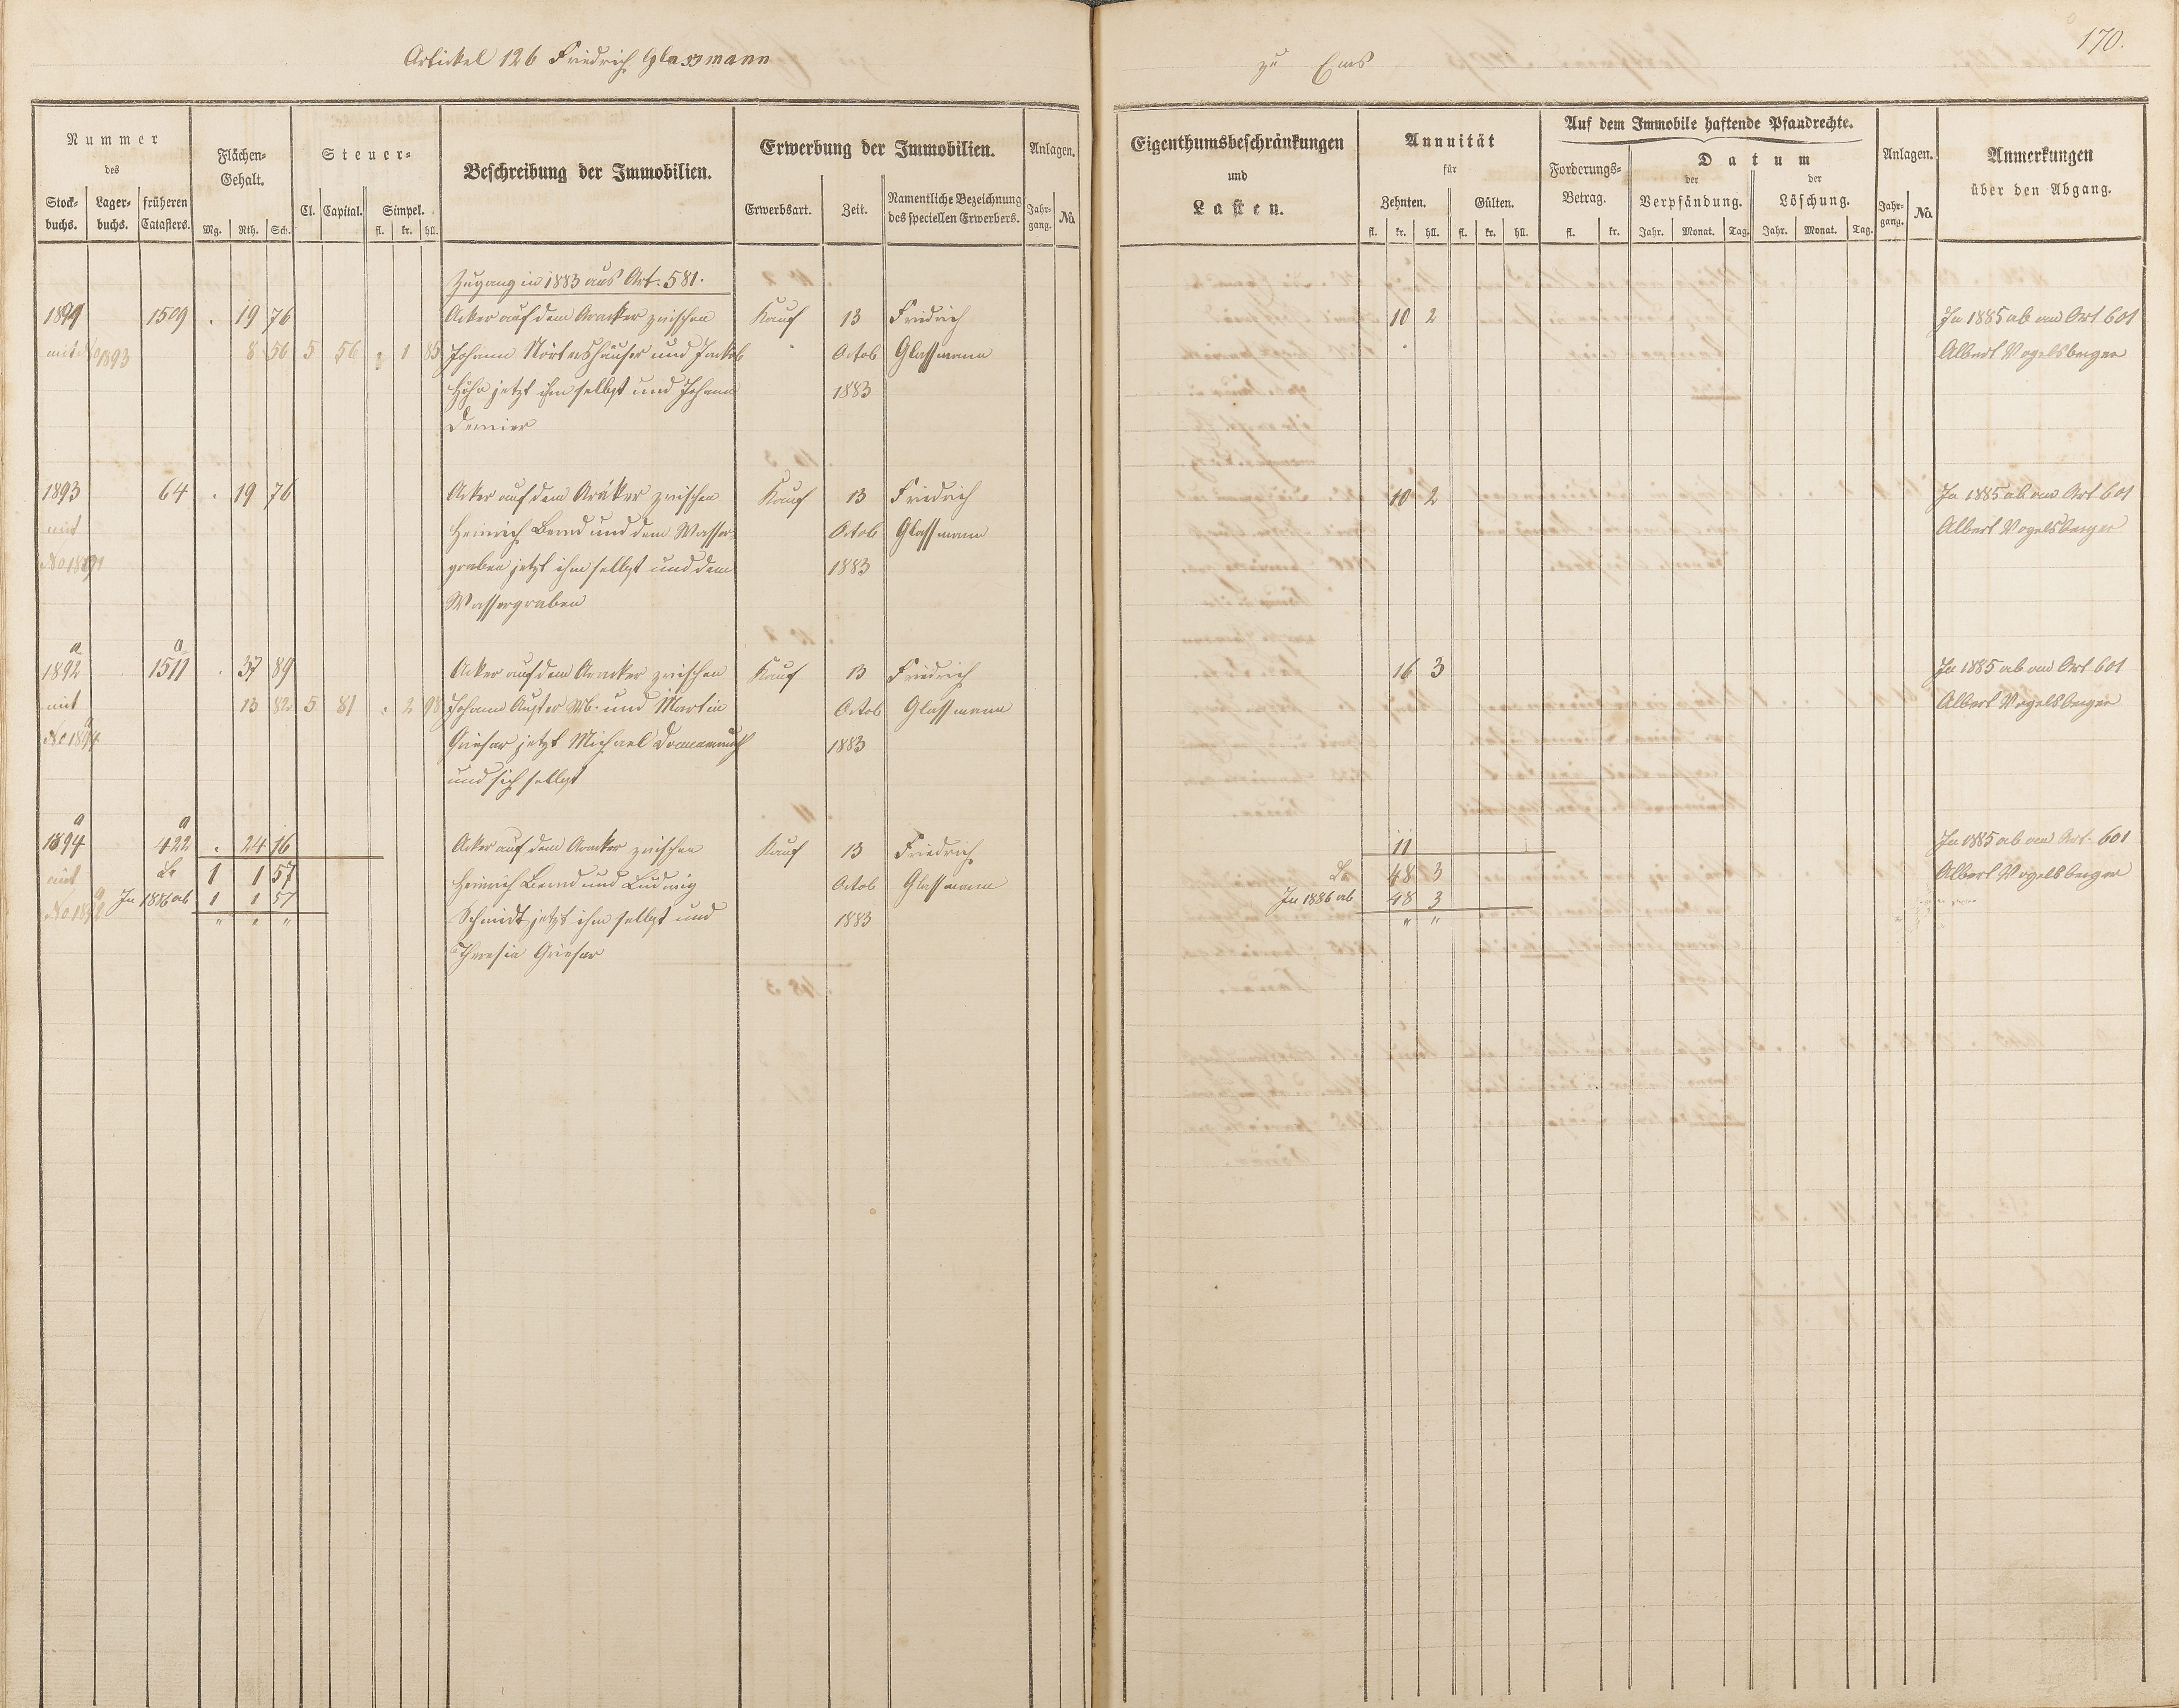 Artickel 126 Friedrich Glassmann
zu Ems
170.
Nummer
des
Stock-
buchs.
Lager-
buchs.
früheren
Catasters.
Flächen-
Gehalt.
Mg. Rth. Sch.
Steuer-
Cl. Capital. Simpel.
fl. kr. hll.
Beschreibung der Immobilien.
Erwerbung der Immobilien.
Erwerbsart. Zeit.
Namentliche Bezeichnung
des speciellen Erwerbers.
Anlagen.
Jahr-
gang. No
Eigenthumsbeschränkungen
und
Lasten.
Annuität
für
Zehnten. Gülten.
fl. kr. hll. fl. kr. hll.
Auf dem Immobile haftende Pfandrechte.
Forderungs-
Betrag.
fl. kr.
Datum
der
Verpfändung.
Jahr. Monat. Tag.
der
Löschung.
Jahr. Monat. Tag.
Anlagen.
Jahr-
gang. No.
Anmerkungen
über den Abgang.
Zugang in 1883 aus Art. 581.
1891 1509 . 19 76 Acker auf dem zwischen Kauf 13 Friedrich 10 2 In 1885 ab an Art 601
mit No 1893 8 56 5 56 1 85 Johann Nörtershäuser und Jackob Octob Glassmann Albert Vogelsberger
Höhn jetzt ihm selbst und Johann 1883
1893 64 . 19 76 Acker auf dem zwischen Kauf 13 Friedrich 10 2 In 1885 ab an Art 601
mit Heinrich Bernd und dem Wasser- Octob Glassmann Albert Vogelsberger
No 1891 graben jetzt ihm selbst und dem 1883
Wassergraben
a a
1892 1511 . 37 89 Acker auf dem zwischen Kauf 13 Friedrich 16 3 In 1885 ab an Art 601
mit 13 82 5 81 . 2 98 Johann und Martin Octob Glassmann Albert Vogelsberger
No 1894 Griesar jetzt Michael 1883
und sich selbst
a a
1894 422 . 24 16 Acker auf dem zwischen Kauf 13 Friedrich 11 In 1885 ab an Art. 601
mit 1 1 57 Heinrich Bernd und Ludwig Octob Glassmann 48 3 Albert Vogelsberger
No 1892 In 1886 ab 1 1 57 Schmidt jetzt ihm selbst und 1883 In 1886 ab 48 3
" " " " "
Theresia Griesar